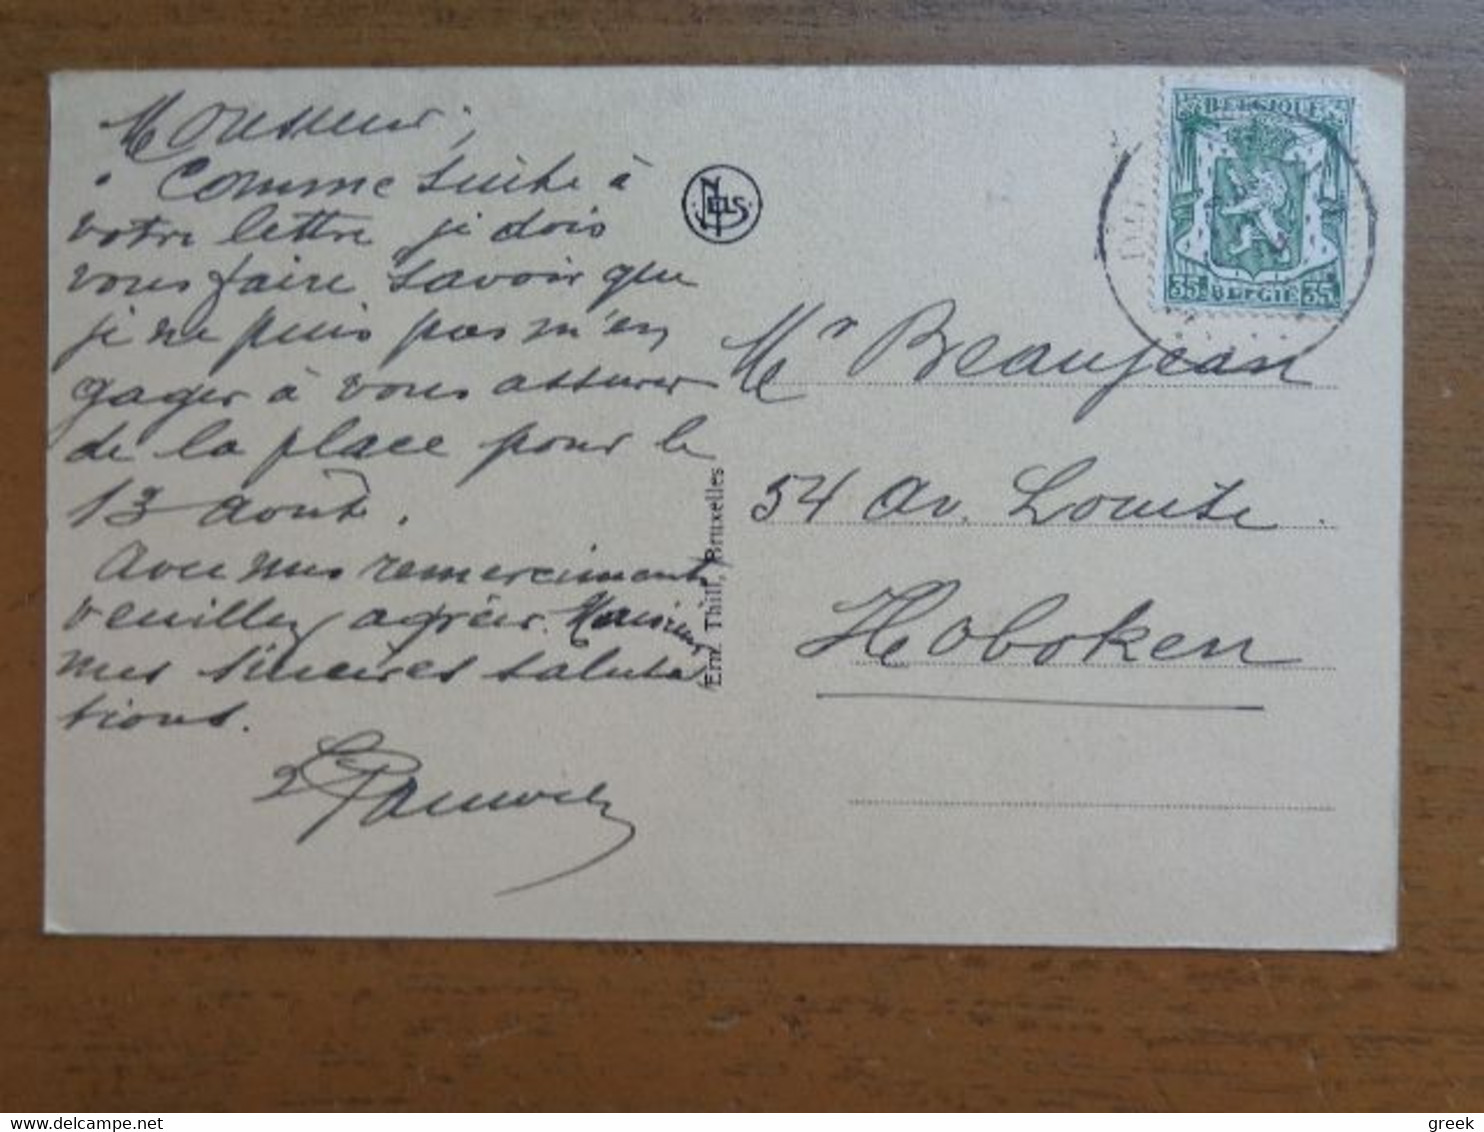 Monsieur,
Comme suite à
votre lettre je dois
vous faire savoir que
je ne puis pas m'en
gager à vous assurer
de la place pour le
13 août.
Avec mes remerciements
veuillez agréer Monsieur
mes sincères saluta
tions.
Pauwels
NELS
Ern. Thill, Bruxelles
BELGIQUE
35 BELGIE 35
Mr Beaujean
54 Av. Louise
Hoboken
delcampe.net
greek